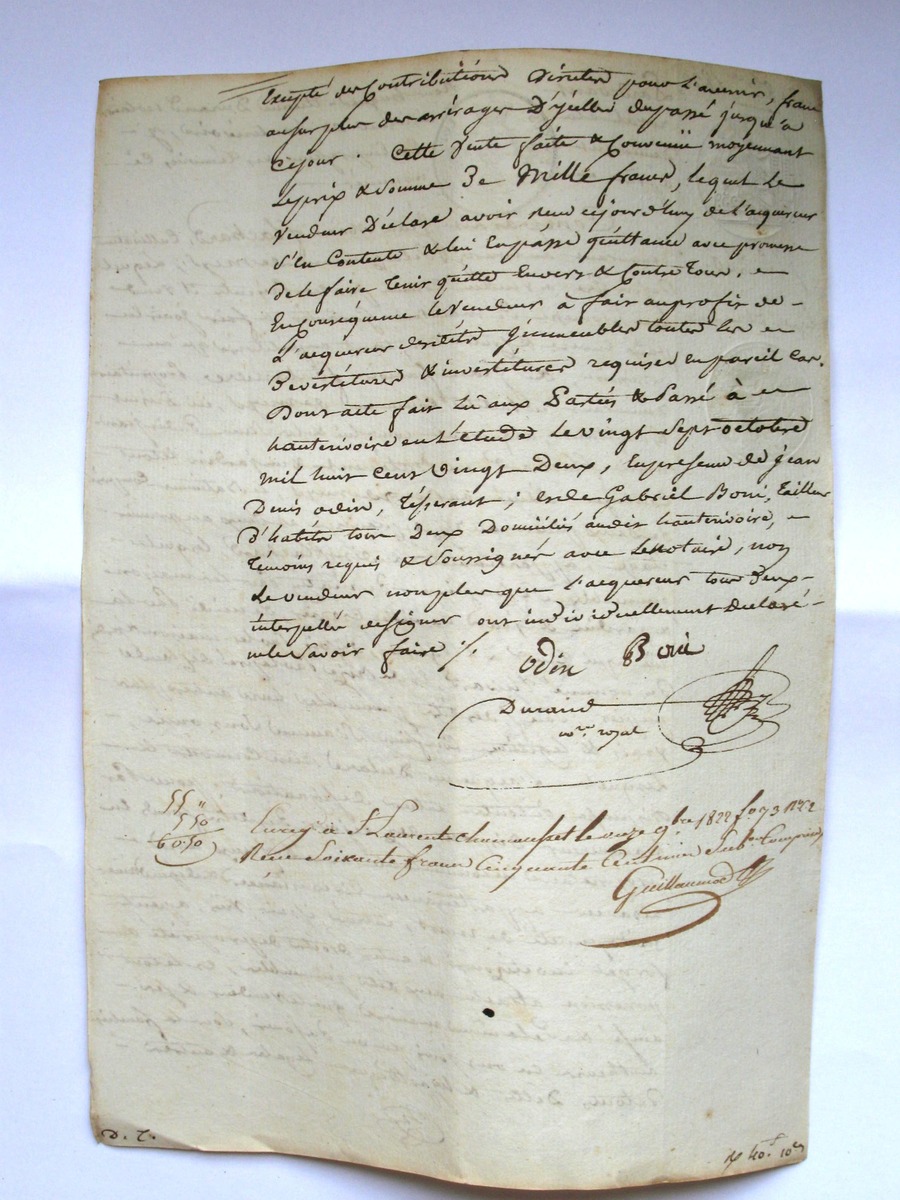 Excepté des Contributions directes pour l'avenir, franc
au surplus des arrérages D'yceller du passé jusqu'à
cejour. Cette Vente faite & Convenue moyennant
Leprix & Somme De Mille francs, lequel le
Vendeur Déclare avoir reçu cejourd'huy de l'acquereur
S'en Contente & lui En passe quittance avec promesse
De le faire Tenir quitte Envers & Contre Tous, en
Conséquence le Vendeur à fait au profit de -
L'acquereur desdits Jmmeubles toutes les
Devestitures & investitures requises en pareil Cas.
Dont acte fait Lû aux Parties & Passé à
hauterivoire en L'étude Le vingt Sept octobre
mil huit cent Vingt Deux, En presence de jean
Denis odin, Tisserant; et de Gabriel Boni, Tailleur
D'habits tous Deux Domiciliés audit hauterivoire,
Témoins requis & Soussignés avec Le Notaire, non
Le vendeur non plus que l'acquereur tous Deux -
interpellés de signer ont individuellement Declaré -
ne le Savoir faire ./.
Odin Boni
Durand
nre royal
55 "
5 50
60.50
Enreg à St Laurent chamousset le onze 9bre 1822 fo 73
Reçu Soixante francs Cinquante Centimes Subon Comprise
Guillaumod
D. T.